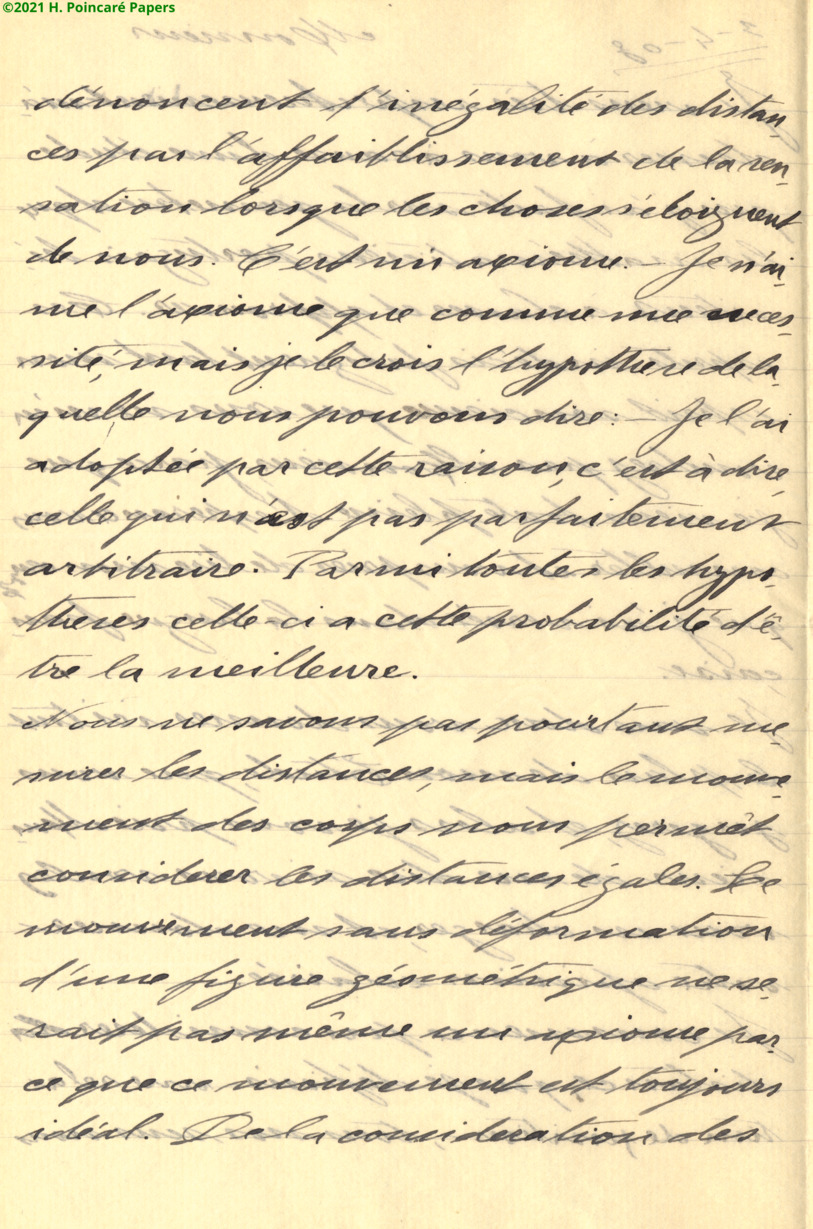 ©2021 H. Poincaré Papers
dénoncent l'inégalité des distan-
ces par l'affaiblissement de la sen-
sation lorsque les choses s'éloignent
de nous. C'est un axiome. – Je n'ai-
me l'axiome que comme une néces-
sité, mais je le crois l'hypothese de la-
quelle nous pouvons dire: – Je l'ai
adoptée par cette raison, c'est à dire,
celle qui n'est pas parfaitement
arbitraire. Parmi toutes les hypo-
theses celle-ci a cette probabilité d'ê-
tre la meilleure.
Nous ne savons pas pourtant me-
surer les distances, mais le mouve-
ment des corps nous permèt
considerer les distances égales. Le
mouvement sans déformation
d'une figure géométrique ne se-
rait pas même un axiome par-
ce que ce mouvement est toujours
idéal. De la consideration des